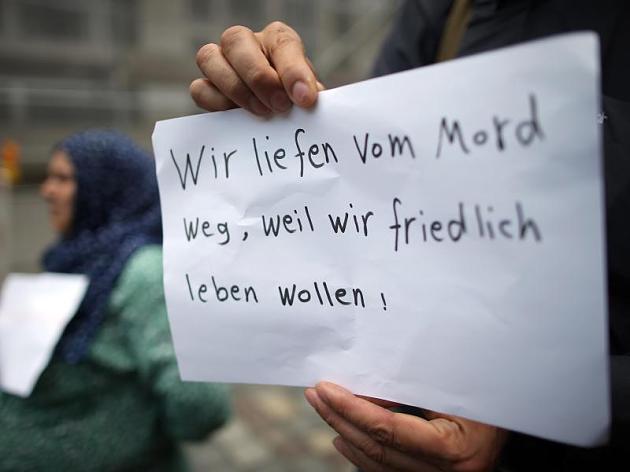 Wir liefen vom Mord
weg, weil wir friedlich
leben wollen!